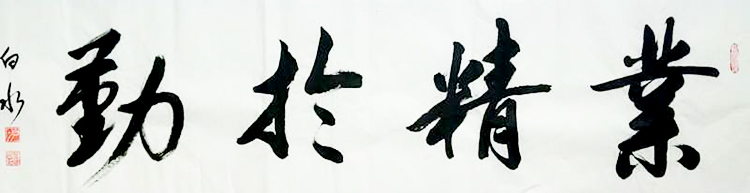 業精於勤
白水